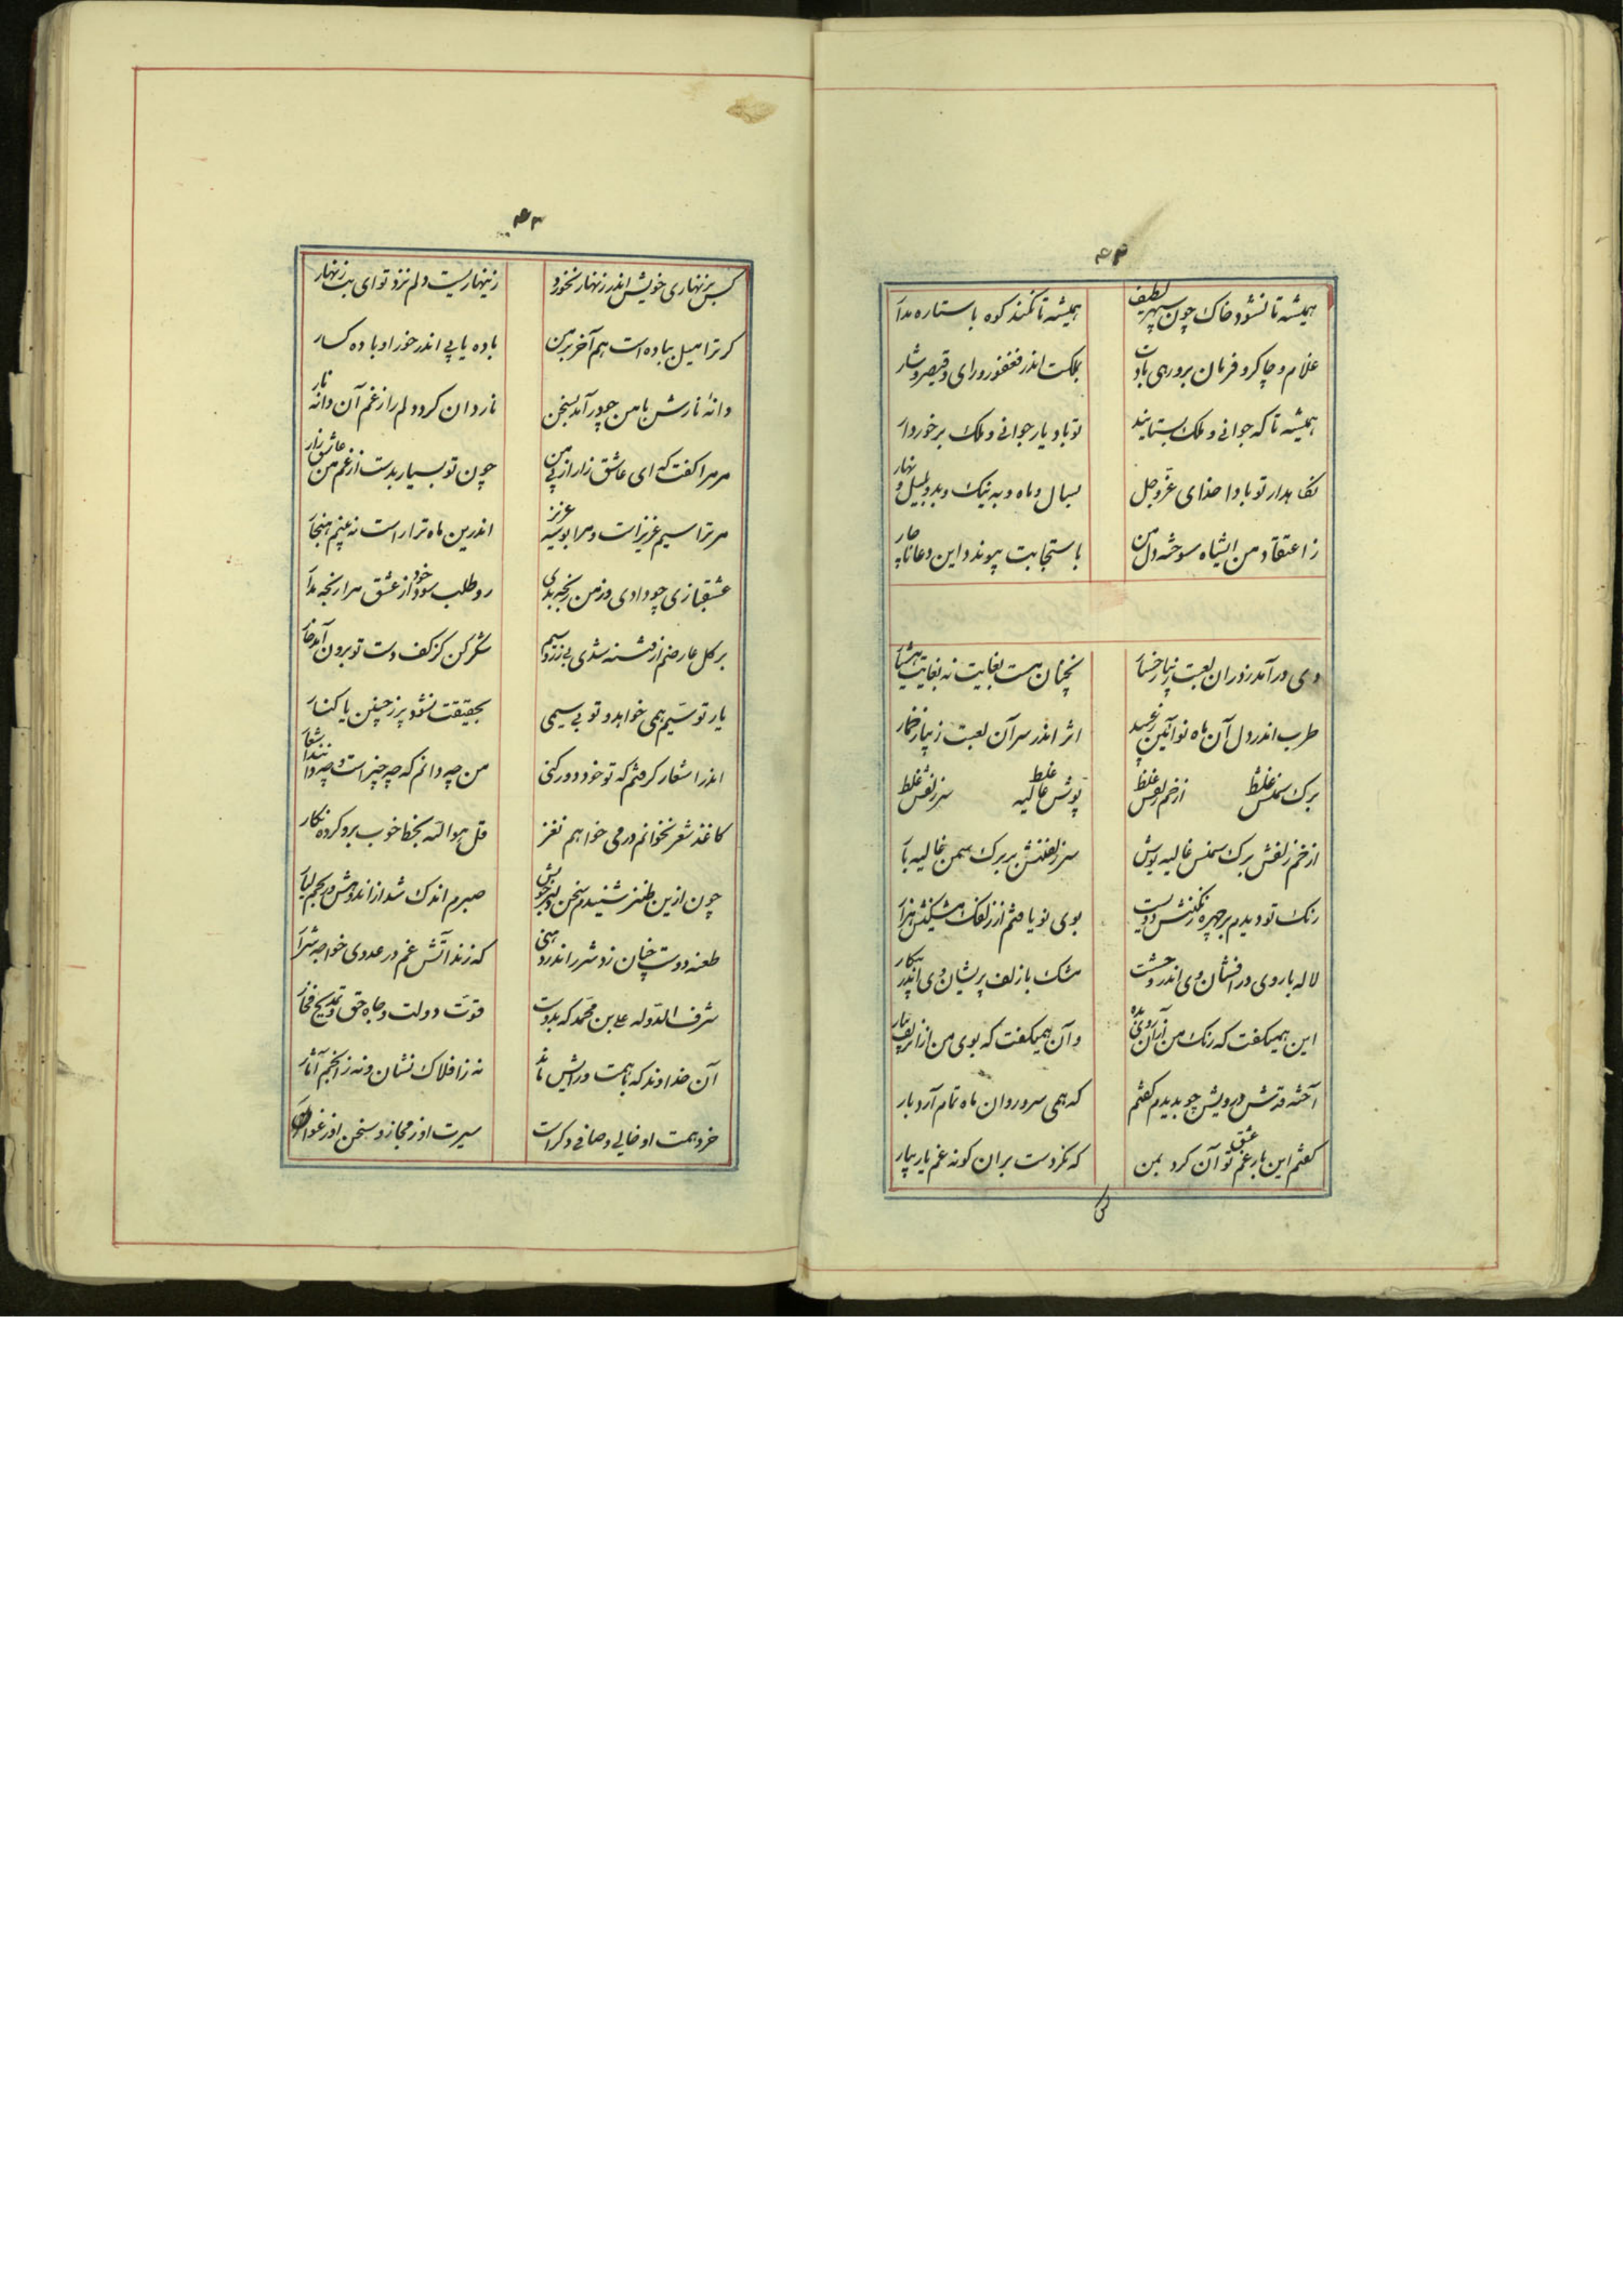 ۴۳
همیشه تا نشود خاک چون سپهر لطیف همیشه تا نکند کوه با ستاره مدا
غلام و چاکر و فرمان بر و رهی بادت بملکت اندر فغفور و رای و قیصر و شار
همیشه تا که جوانی و ملک بستایند تو باد یار جوانی و ملک برخوردار
نکاهدار تو بادا خدای عزوجل بسال و ماه و به نیک و بد و بلیل و نهار
ز اعتقاد من ایشاه سوخته دل من باستجابت پیوندد این دعا
دی درآمد ز در آن لعبت زیبا رخسا نچنان مست بغایت نه بغایت هشیا
طرب اندر دل آن ماه نو آئین اثر اندر سر آن لعبت زیبا ز خمار
برک سمنش غلط از خم زلفش غلط پوش غالیه غلط سر زلفش غلط
از خم زلفش برک سمنش غالیه پوش سر زلفینش بر برک سمن غالیه با
رنک تو دیدم بر چهره رنکینش دویست بوی نو یافتم از زلفک مشکینش هزا
لاله با روی درافشان وی اندر وحشت مشک با زلف پریشان وی اندر پیکار
این همیکفت که رنک من از آن روی بده و آن همیکفت که بوی من از آن زلف بیار
آخته قدش در ویش چو بدیدم کفتم که همی سرو روان ماه تمام آرد بار
کفتم این بار غم عشق تو آن کرد بمن که نکردست بر آن کونه غم یار بیار
۴۴
کس بزنهاری خویش اندر زنهار نخورد زینهاریست دلم نزد تو ای بت زنهار
کر ترا میل بباده است هم آخر بر من باده یابی اندر خور او باده کسار
دانهٔ نارش با من چو درآمد بسخن ناردان کرد دلم را ز غم آن دانه نار
مر مرا کفت که ای عاشق زار از پی من چون تو بسیار بدست از غم من عاشق زار
مر ترا سیم عزیز است و مرا بوسه عزیز اندرین ماه ترا راست نه بینم هنجا
عشقبازی چو دادی و ز من رنجه بدی رو طلب سود خود از عشق مرا رنجه مدا
بر کل عارضم ار فتنه شدی بی زر و سیم شکر کن کز کف دست تو برون آمد خا
یار تو سیم همی خواهد و تو بی سیمی بحقیقت نشود پر ز چنین یار کنار
اندر اشعار کرفتم که تو خود دور کنی من چه دانم که چه چیز است و چه
کاغذ شعر نخوانم ور می خواهم نغز قل هوالله بخط خوب برو کرده نکار
چون ازین طنز شنیدم سخن دلبر خویش صبرم اندک شد از اندوهش و رنجم بسیا
طعنه دوست چنان زد شرر اندر که زند آتش غم در عدوی خواجه شرا
شرف الدوله علی بن محمد که بدوست قوت دولت و جاه حق و فخا
آن خداوند که با همت و رایش ماند نه ز افلاک نشان و نه ز انجم آثار
خرد و همت او خالی و صافی و کراست سیرت او ز مجاز و سخن او ز عوار